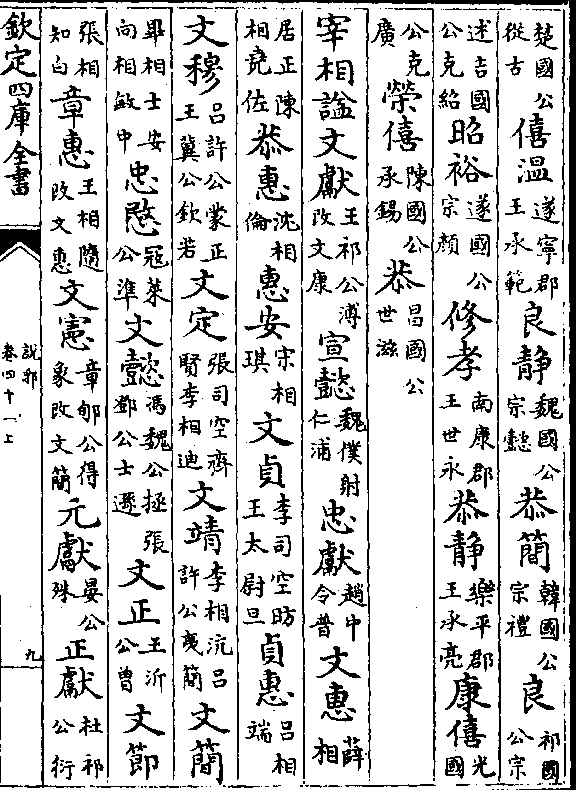 楚國公從古僖温遂寧郡王承範良靜魏國公宗懿恭簡韓國公宗禮良祁國公宗
述吉國公克紹昭裕遂國公宗顔修孝南康郡王世永恭靜樂平郡王承亮康僖光國
公克廣榮僖陳國公承錫恭昌國公世滋
宰相謚文獻王祁公溥改文康宣懿魏僕射仁浦忠獻趙中令普文惠薛相
居正陳相堯佐恭惠沈相倫惠安宋相琪文貞李司空昉王太尉旦貞惠吕相端
文穆吕許公蒙正王冀公欽若文定張司空齊賢李相迪文靖李相沆吕許公夷簡文簡
畢相士安向相敏中忠愍寇萊公準文懿馮魏公拯張鄧公士遜文正王沂公曾文節
張相知白章惠王相隨改文惠文憲章郇公得象改文簡元獻晏公殊正獻杜祁公衍
欽定四庫全書
說郛
卷四十一上
九